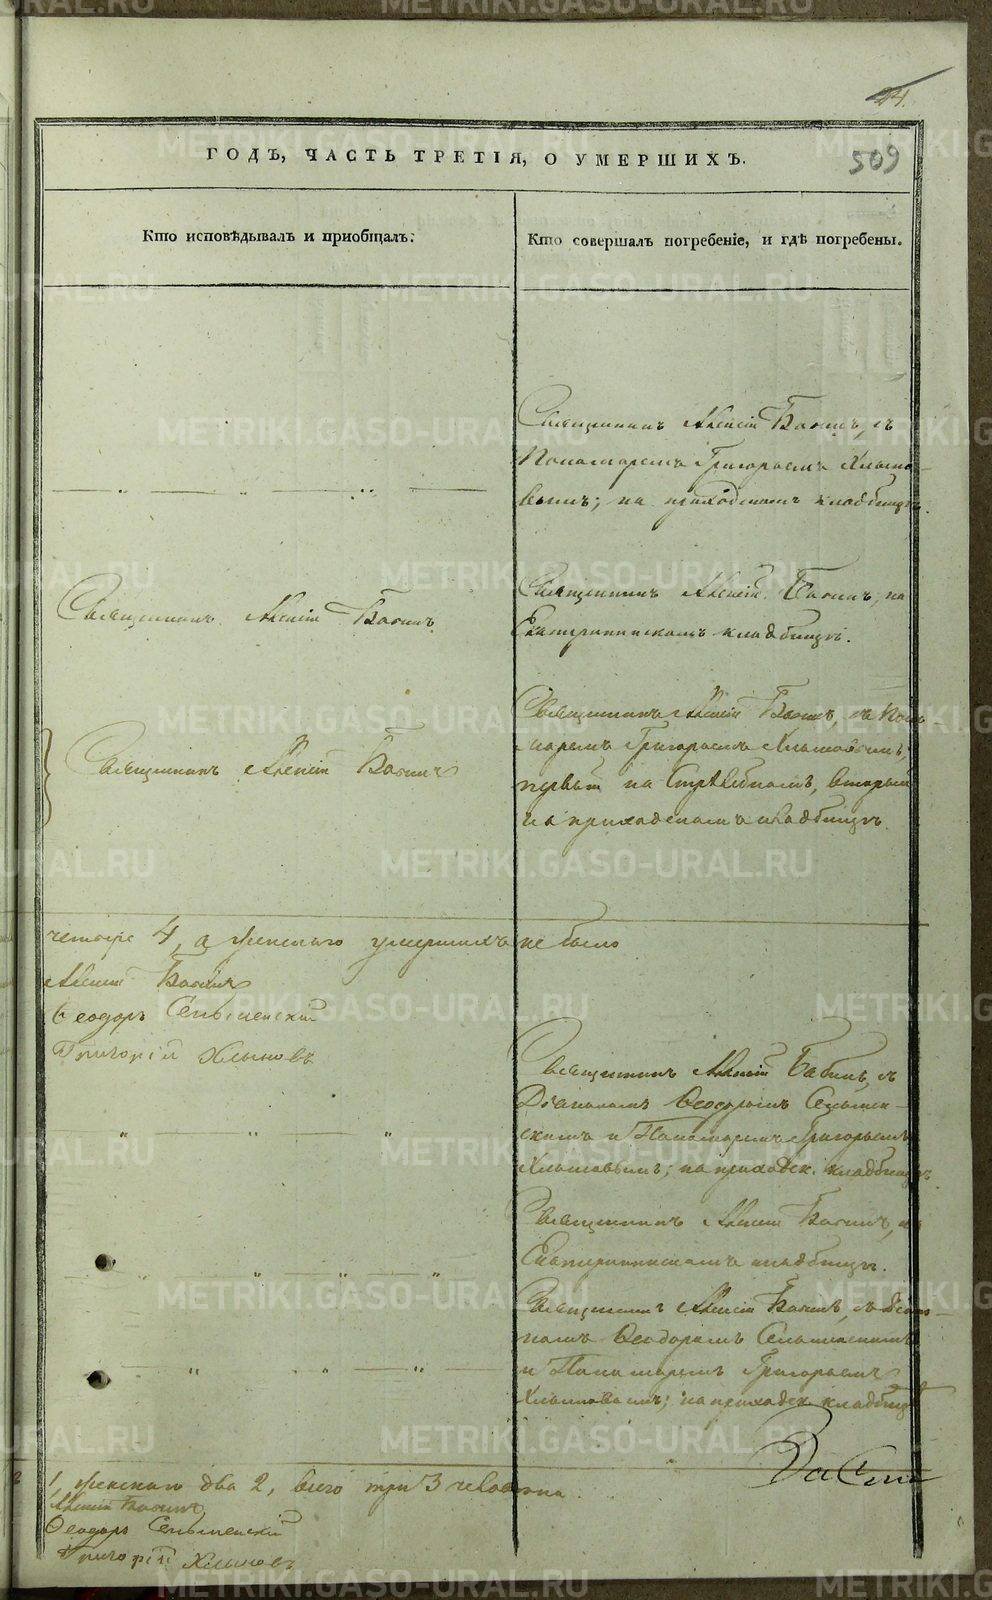 509
ГОДЪ, ЧАСТЬ ТРЕТІЯ, О УМЕРШИХЪ.
Кто исповѣдывалъ и пріобщалъ:
Кто совершалъ погребеніе, и гдѣ погребены.
Священникъ Алексій Бабинъ, съ
Пономаремъ Григорьемъ Хлыно-
вымъ; на приходскомъ кладбищѣ.
Священникъ Алексій Бабинъ
Священникъ Алексій Бабинъ, на
Екатерининскомъ кладбищѣ.
Священникъ Алексій Бабинъ
Священникъ Алексій Бабинъ, съ Поно-
маремъ Григорьемъ Хлыновымъ,
первый на вторый
на приходскомъ кладбищѣ.
четыре 4, а женскаго умершихъ не было
Алексій Бабинъ
Ѳеодоръ
Григорій Хлыновъ
Священникъ Алексій Бабинъ, съ
Діакономъ Ѳеодоромъ
и Пономаремъ Григорьемъ
Хлыновымъ; на приходск. кладбищѣ
Священникъ Алексій Бабинъ, на
Екатерининскомъ кладбищѣ.
Священникъ Алексій Бабинъ, съ Діако-
номъ Ѳеодоромъ
и Пономаремъ Григорьемъ
Хлыновымъ; на приходск. кладбищѣ
1, женскаго два 2, всего три 3 человѣка.
Алексій Бабинъ
Ѳеодоръ
Григорій Хлыновъ
METRIKI.GASO-URAL.RU